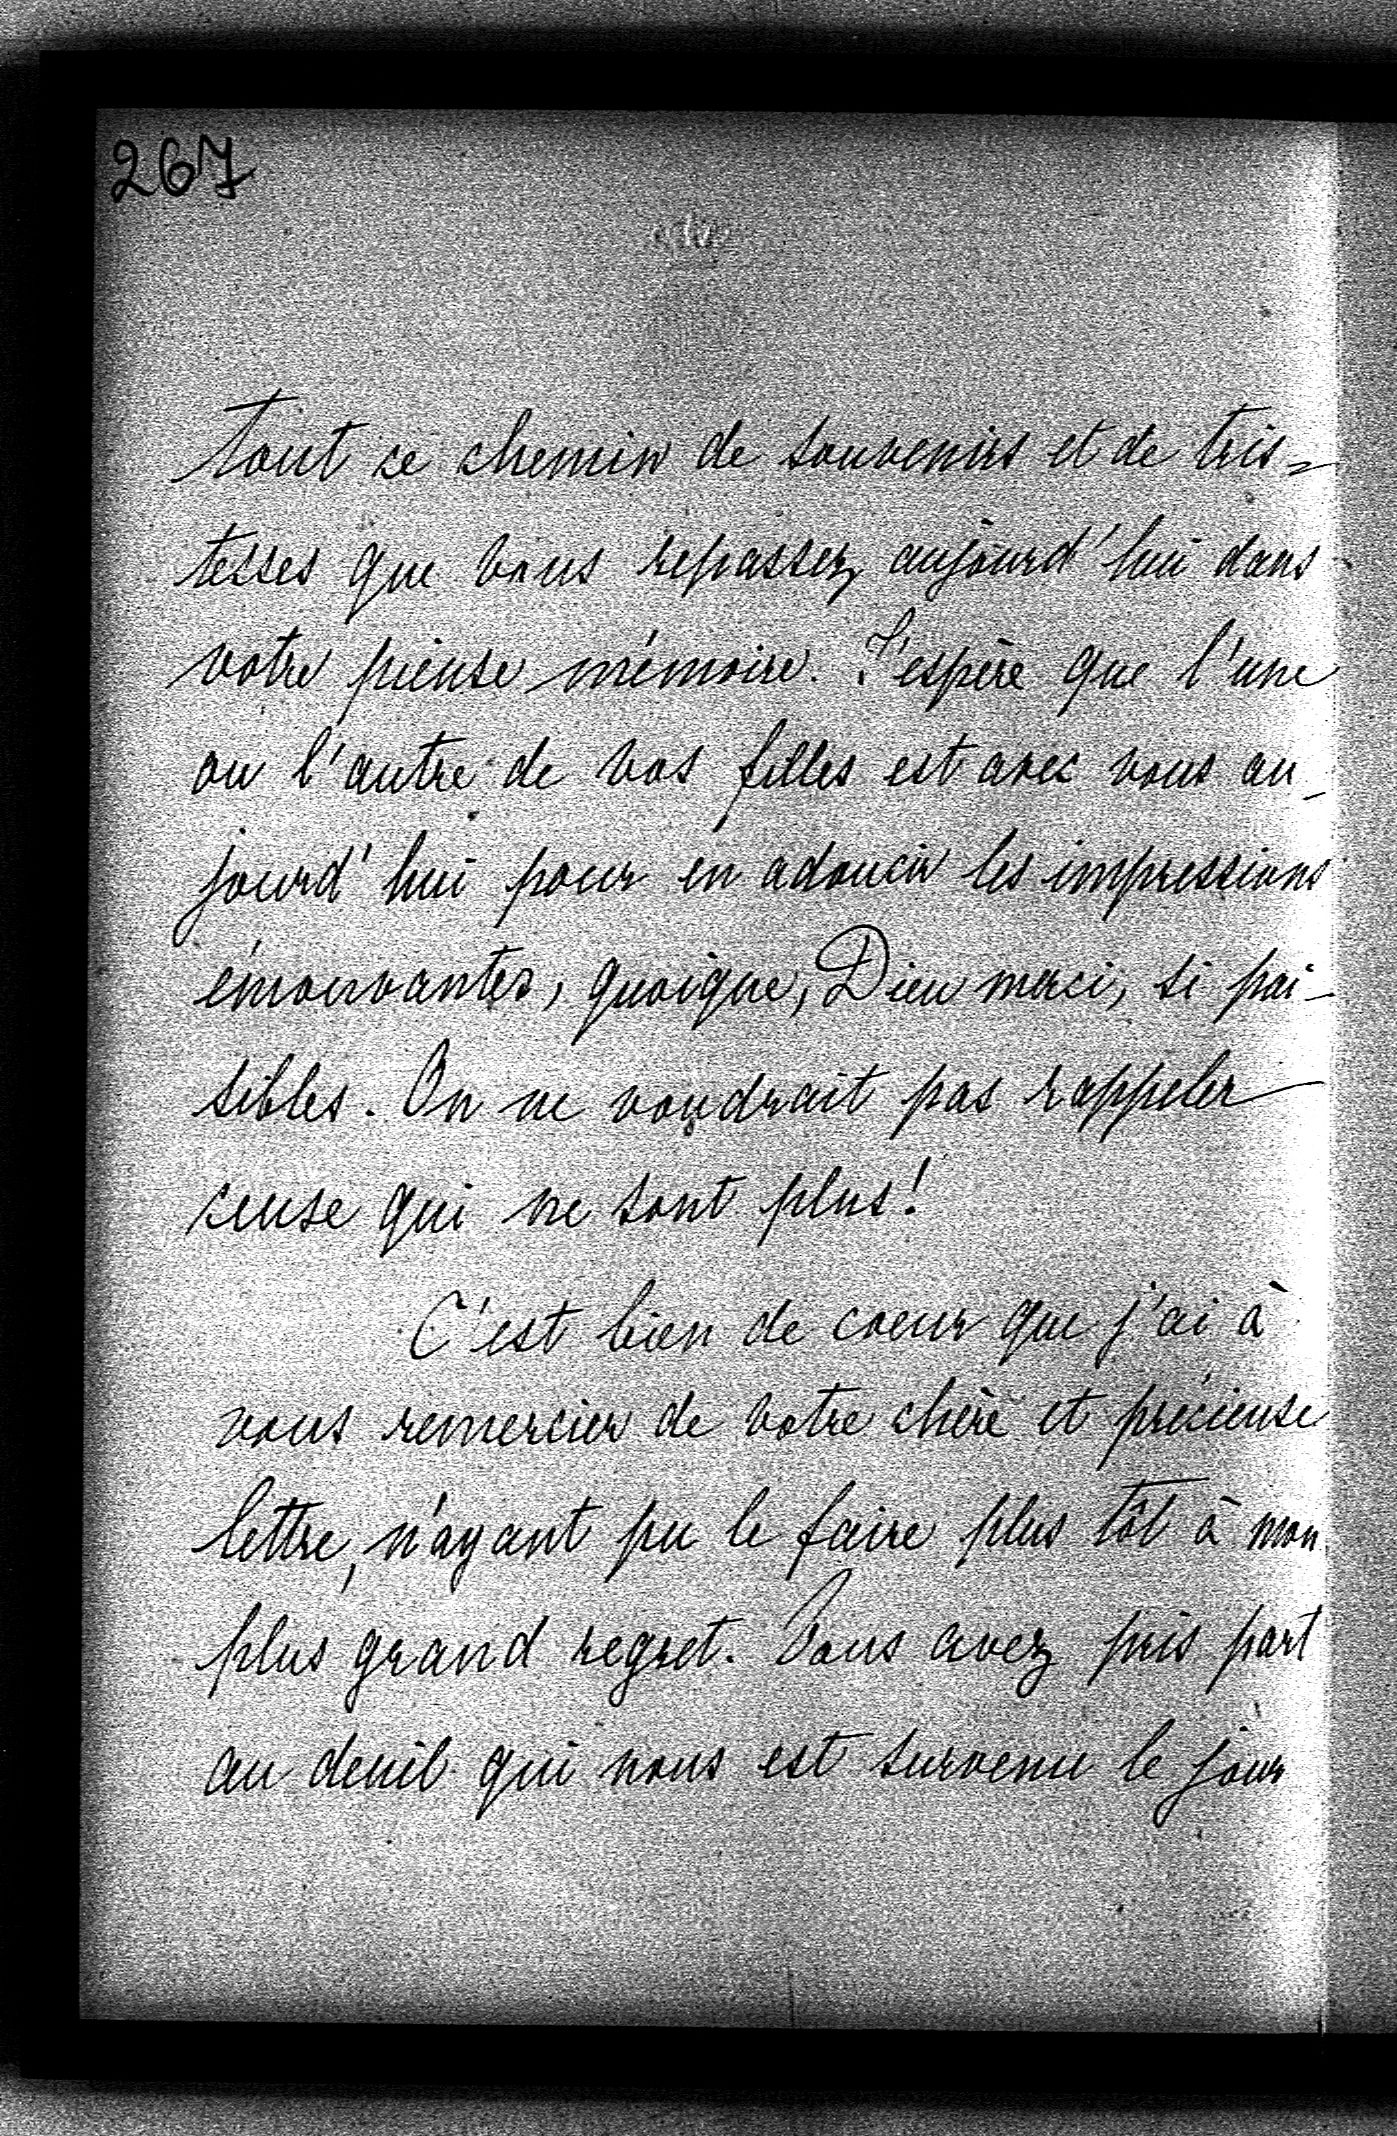 267
tout ce chemin de souvenirs et de tris-
tesses que vous repassez aujourd'hui dans
votre pieuse mémoire. J'espère que l'une
ou l'autre de vos filles est avec vous au-
jourd'hui pour en adoucir les impressions
émouvantes, quoique, Dieu merci, si pai-
sibles. On ne voudrait pas rappeler
ceuse qui ne sont plus!
C'est bien de coeur que j'ai à
vous remercier de votre chère et précieuse
lettre, n'ayant pu le faire plus tôt à mon
plus grand regret. Vous avez pris part
au deuil qui nous est survenu le jour